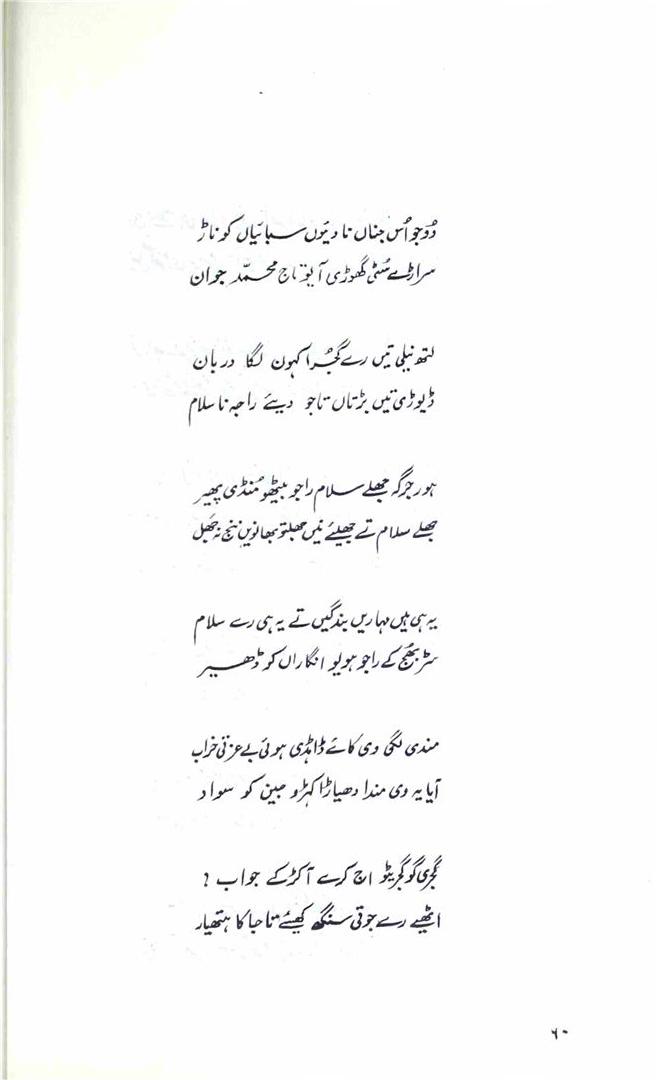 دُوجو اُس جناں نا دیئوں سبائیاں کو ناڑ
سرارڑے سُٹی گھوڑی آیو تاج محمّد جوان
لتھ نیلی تیں رے گجُرا کہون لگا دربان
ڈیوڑی تیں بڑتاں تاجو دیئے راجہ نا سلام
ہور جرگہ جھلے سلام راجو بیٹھو مُنڈی پھیر
جھلے سلام تے جھلیئے نیں جھلتو بھانویں نِنج نہ جَھل
یہ ہی ہیں مہاریں بندگیں تے یہ ہی رے سلام
سڑ بھُج کے راجو ہو یو انگاراں کو ڈھیر
مندی لگی وی کائے ڈاہڈی ہوئی بے عزتی خراب
آیا یہ وی مندا دھیاڑا کہڑو جین کو سواد
گجری گو گجریٹو اج کرے آکڑ کے جواب ؟
اٹھیے رے جوتی سنگھ کھیئے تاجا کا ہتھیار
۶۰